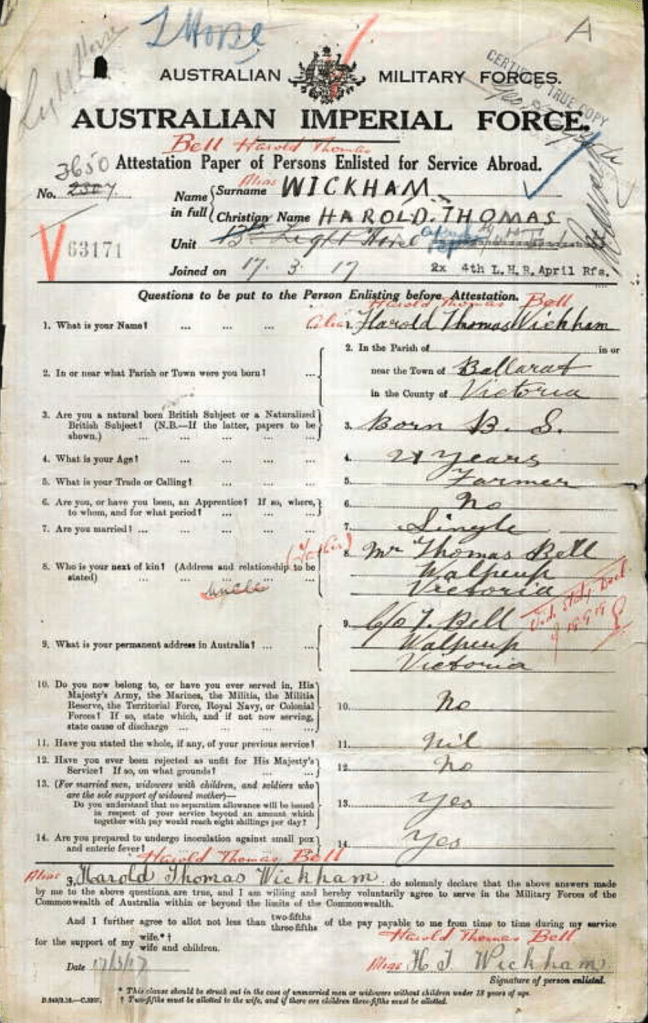 L Horse
A
Lt Horse
AUSTRALIAN MILITARY FORCES.
CERTIFIED TRUE COPY
AUSTRALIAN IMPERIAL FORCE.
Bell Harold Thomas
Attestation Paper of Persons Enlisted for Service Abroad.
No. 3650
Name in full { Surname Alias WICKHAM
Christian Name HAROLD THOMAS
63171
Unit 13th Light Horse
Joined on 17.3.17 2x 4th L.H.R. April Rfs.
Questions to be put to the Person Enlisting before Attestation.
Harold Thomas Bell
1. What is your Name? ... ... ... alias 1. Harold Thomas Wickham
2. In or near what Parish or Town were you born? ... 2. In the Parish of in or
near the Town of Ballarat
in the County of Victoria
3. Are you a natural born British Subject or a Naturalized
British Subject? (N.B.—If the latter, papers to be
shown.) ... ... ... ... 3. Born B. S.
4. What is your Age? ... ... ... ... 4. 21 years
5. What is your Trade or Calling? ... ... ... 5. Farmer
6. Are you, or have you been, an Apprentice? If so, where,
to whom, and for what period? ... ... ... 6. No
7. Are you married? ... ... ... ... 7. Single
(Father)
8. Who is your next of kin? (Address and relationship to be
stated) ... ... ... ... 8. Mr Thomas Bell
uncle
Walpeup
Victoria
Vide Staty Decl
d 18.9.19
9. What is your permanent address in Australia? ... ... 9. C/o T. Bell
Walpeup
Victoria
10. Do you now belong to, or have you ever served in, His
Majesty's Army, the Marines, the Militia, the Militia
Reserve, the Territorial Force, Royal Navy, or Colonial
Forces? If so, state which, and if not now serving,
state cause of discharge ... ... ... ... 10. No
11. Have you stated the whole, if any, of your previous service? 11. nil
12. Have you ever been rejected as unfit for His Majesty's
Service? If so, on what grounds? ... ... ... 12. No
13. (For married men, widowers with children, and soldiers who
are the sole support of widowed mother)—
Do you understand that no separation allowance will be issued
in respect of your service beyond an amount which
together with pay would reach eight shillings per day? 13. Yes
14. Are you prepared to undergo inoculation against small pox
and enteric fever? 14. Yes
Harold Thomas Bell
Alias
I, Harold Thomas Wickham do solemnly declare that the above answers made
by me to the above questions are true, and I am willing and hereby voluntarily agree to serve in the Military Forces of the
Commonwealth of Australia within or beyond the limits of the Commonwealth.
And I further agree to allot not less than two-fifths three-fifths of the pay payable to me from time to time during my service
for the support of my wife.*† wife and children.
Harold Thomas Bell
Date 17/3/17 Alias H. T. Wickham
Signature of person enlisted.
* This clause should be struck out in the case of unmarried men or widowers without children under 18 years of age.
† Two-fifths must be allotted to the wife, and if there are children three-fifths must be allotted.